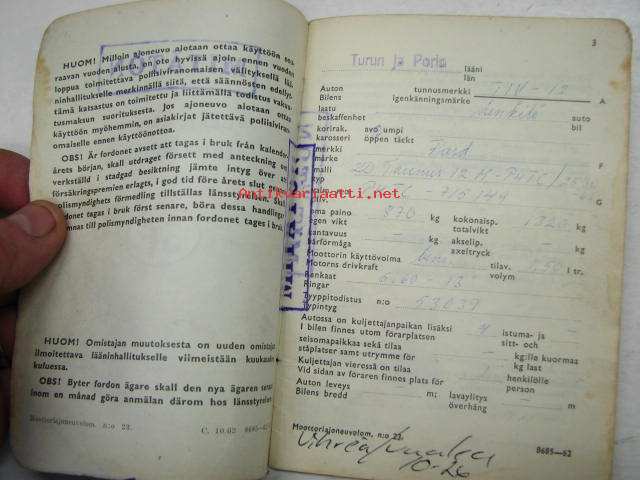 HUOM! Milloin ajoneuvo aiotaan ottaa käyttöön seu-
raavan vuoden alusta, on oto hyvissä ajoin ennen vuoden
loppua toimitettava poliisiviranomaisen välityksellä lää-
ninhallitukselle merkinnällä siitä, että säännösten edellyt-
tämä katsastus on toimitettu ja liittämällä todistus vakuu-
tusmaksun suorituksesta. Jos ajoneuvo aiotaan ottaa
käyttöön myöhemmin, on asiakirjat jätettävä poliisiviran-
omaiselle ennen käyttöönottoa.
OBS! Är fordonet avsett att tagas i bruk från kalender-
årets början, skall utdraget försett med anteckning om
verkställd i stadgad besiktning jämte intyg över att
försäkringspremien erlagts, i god tid före årets slut genom
polismyndighets förmedling tillställas länsstyrelsen. Skall
fordonet tagas i bruk först senare, böra dessa handlingar
lämnas till polismyndigheten innan fordonet tages i bruk.
HUOM! Omistajan muutoksesta on uuden omistajan
ilmoitettava lääninhallitukselle viimeistään kuukauden
kuluessa.
OBS! Byter fordon ägare skall den nya ägaren senast
inom en månad göra anmälan därom hos länsstyrelsen.
Moottoriajoneuvolom. n:o 23. C. 10.62 8685-62
3
Turun ja Porin lääni
län
Auton tunnusmerkki TIV-12 A
Bilens igenkänningsmärke
laatu Henkilö auto
beskaffenhet bil
korirak. avo umpi
karosseri öppen täckt
merkki Ford F
märke
malli 2D Taunus 12 M
G
oma paino 870 kg kokonaisp. kg
egen vikt totalvikt
kantavuus — kg akselip. — kg
bärförmåga axeltryck
Moottorin käyttövoima tilav. l tr.
Motorns drivkraft volym
Renkaat 5.60-13
Ringar
Tyyppitodistus n:o 53039
Typintyg
Autossa on kuljettajanpaikan lisäksi 4 istuma- ja
I bilen finnes utom förarplatsen sitt- och
seisomapaikkaa sekä tilaa — kg:lle kuormaa
ståplatser samt utrymme för kg last
Kuljettajan vieressä on tilaa — henkilölle
Vid sidan av föraren finnes plats för person
Auton leveys — m; lavaylitys — m
Bilens bredd överhäng
Moottoriajoneuvolom. n:o 23. 8685-62
Antikvariaatti.net